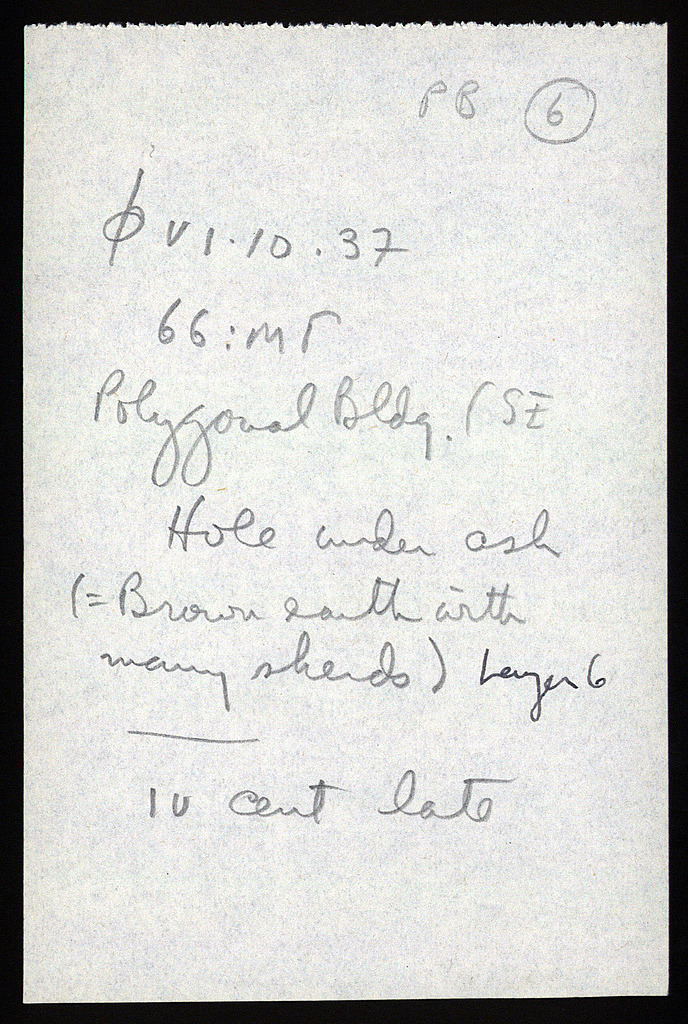 PB 6
φ VI·10·37
66:ΜΓ
Polygonal Bldg. (SE
Hole under ash
(= Brown earth with
many sherds) Layer 6
IV cent late